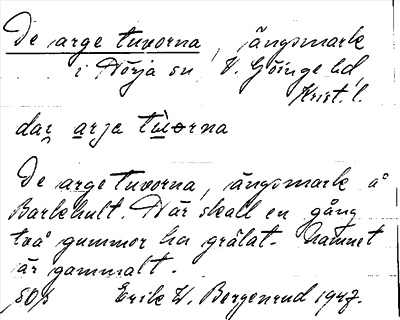 De arge tuvorna, ängsmark
i Nörja sn V. Göinge hd,
Krist. l.
dar arja tùorna
De arge tuvorna, ängsmark å
Barkhult. Där skall en gång
två gummor ha grälat. Namnet
är gammalt.
Erik W. Bergenrud 1947.